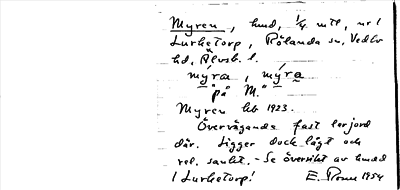 Myren, hmd, 1/4 mtl, nr 1
Lurketorp, Rölanda sn, Vedbo
hd, Älvsb. l.
mýra, mýra
"på M."
Myren leb 1923.
Övervägande fast lerjord
där. Ligger dock lågt och
rel. sankt. - Se översikt av hmed
/ Lurketorp! E. 1954